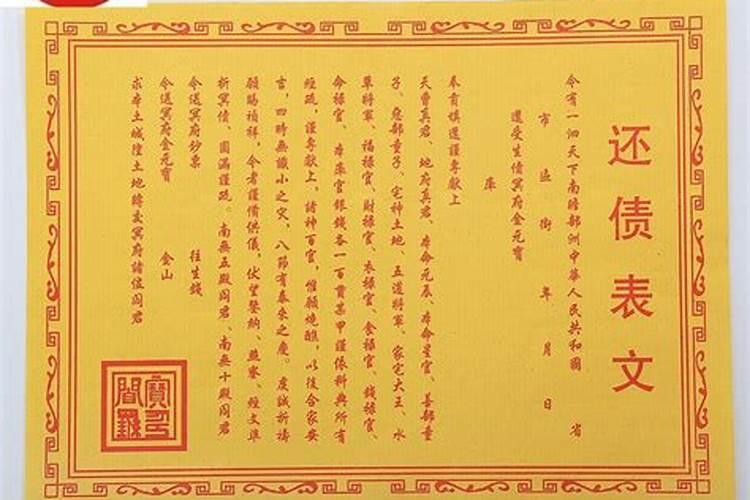 还债表文
今有一泗天下南瞻部洲中華人民共和國 省
市 區 街 年 月 日
還受生債冥府金元寶
庫
奉育填還謹專獻上
天曹真君、地府真君、本命元辰、本命星官、善部童
子、惡部童子、宅神土地、五道將軍、家宅大王、水
草將軍、福祿官、財祿官、衣祿官、食祿官、錢祿官、
命祿官、本庫官銀錢各一百貫某甲謹依科典所有
經疏，謹專獻上，諸神百官，惟願燒醮，以後合家安
吉，四時無纖小之灾，八節有泰來之慶。虔誠祈禱
願賜禎祥，今者謹備供儀，伏望鑒納、燕寥、經文準
折冥債、圓滿謹疏。南無五殿阎君、南無十殿阎君
今送冥府鈔票 往生錢
今送冥府金元寶 金山
求本土城隍土地轉交冥府諸位阎君